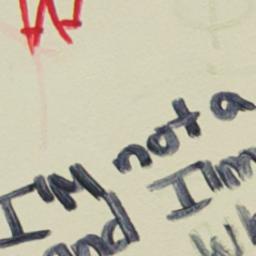 I'M not a
and I'm
wh